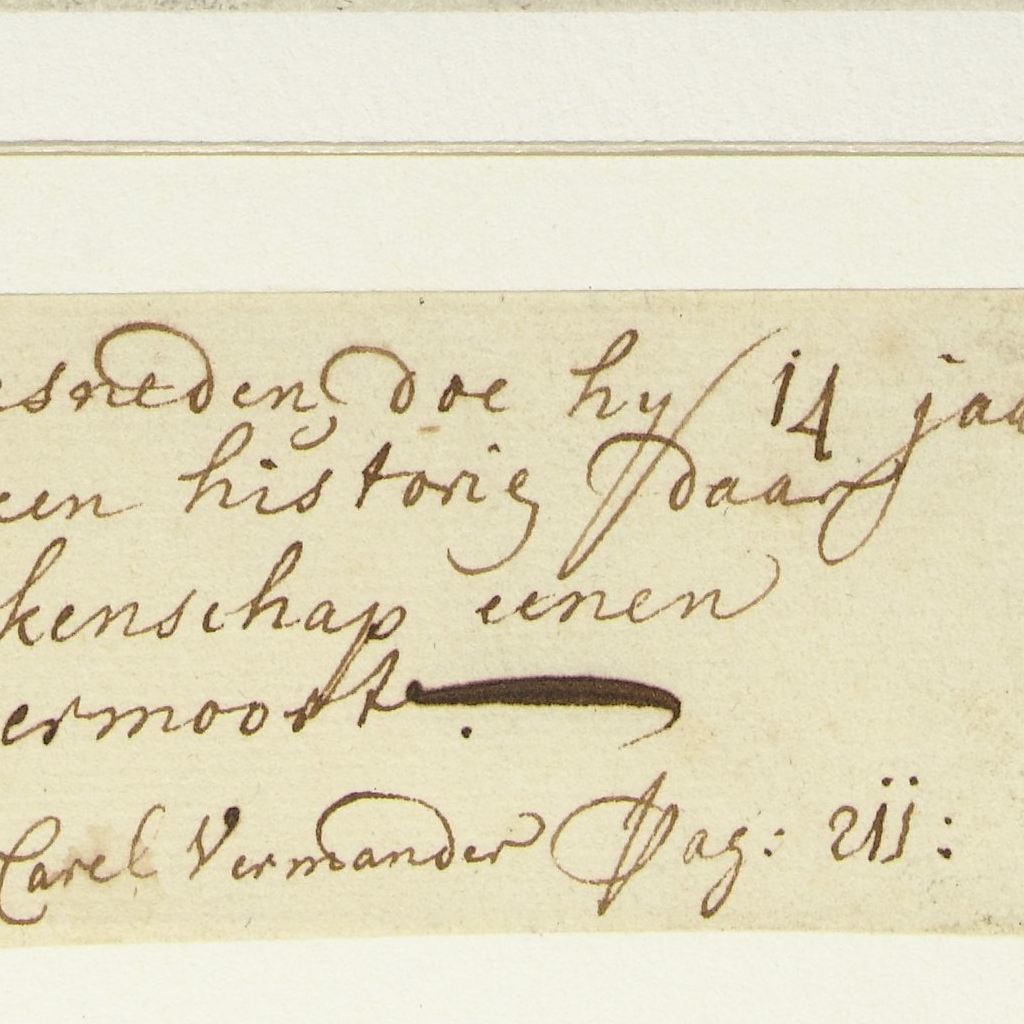 esneden, doe hy 14 jaa
een historie daar
kenschap eenen
ermoort.
Carel Vermander Pag: 211: